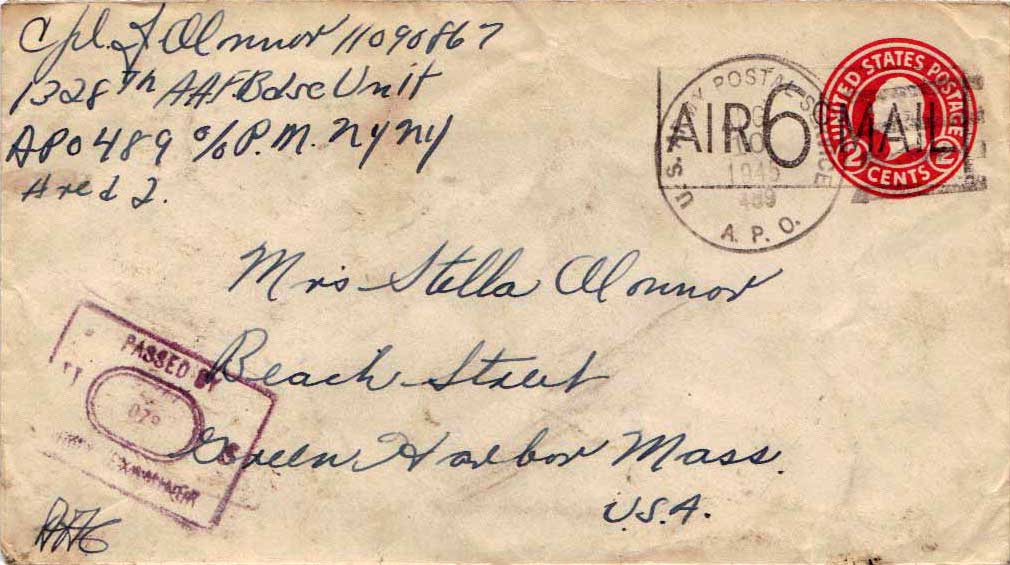 Cpl. J OConnor 11090867
1328th AAF Base Unit
APO 489 c/o P.M. NY NY
Area 2.
U.S. ARMY POSTAL SERVICE
1945
489
A. P. O.
AIR 6 MAIL
UNITED STATES POSTAGE
2 CENTS 2
Mrs Stella OConnor
Beach Street
Green Harbor Mass.
U.S.A.
PASSED BY
ARMY EXAMINER